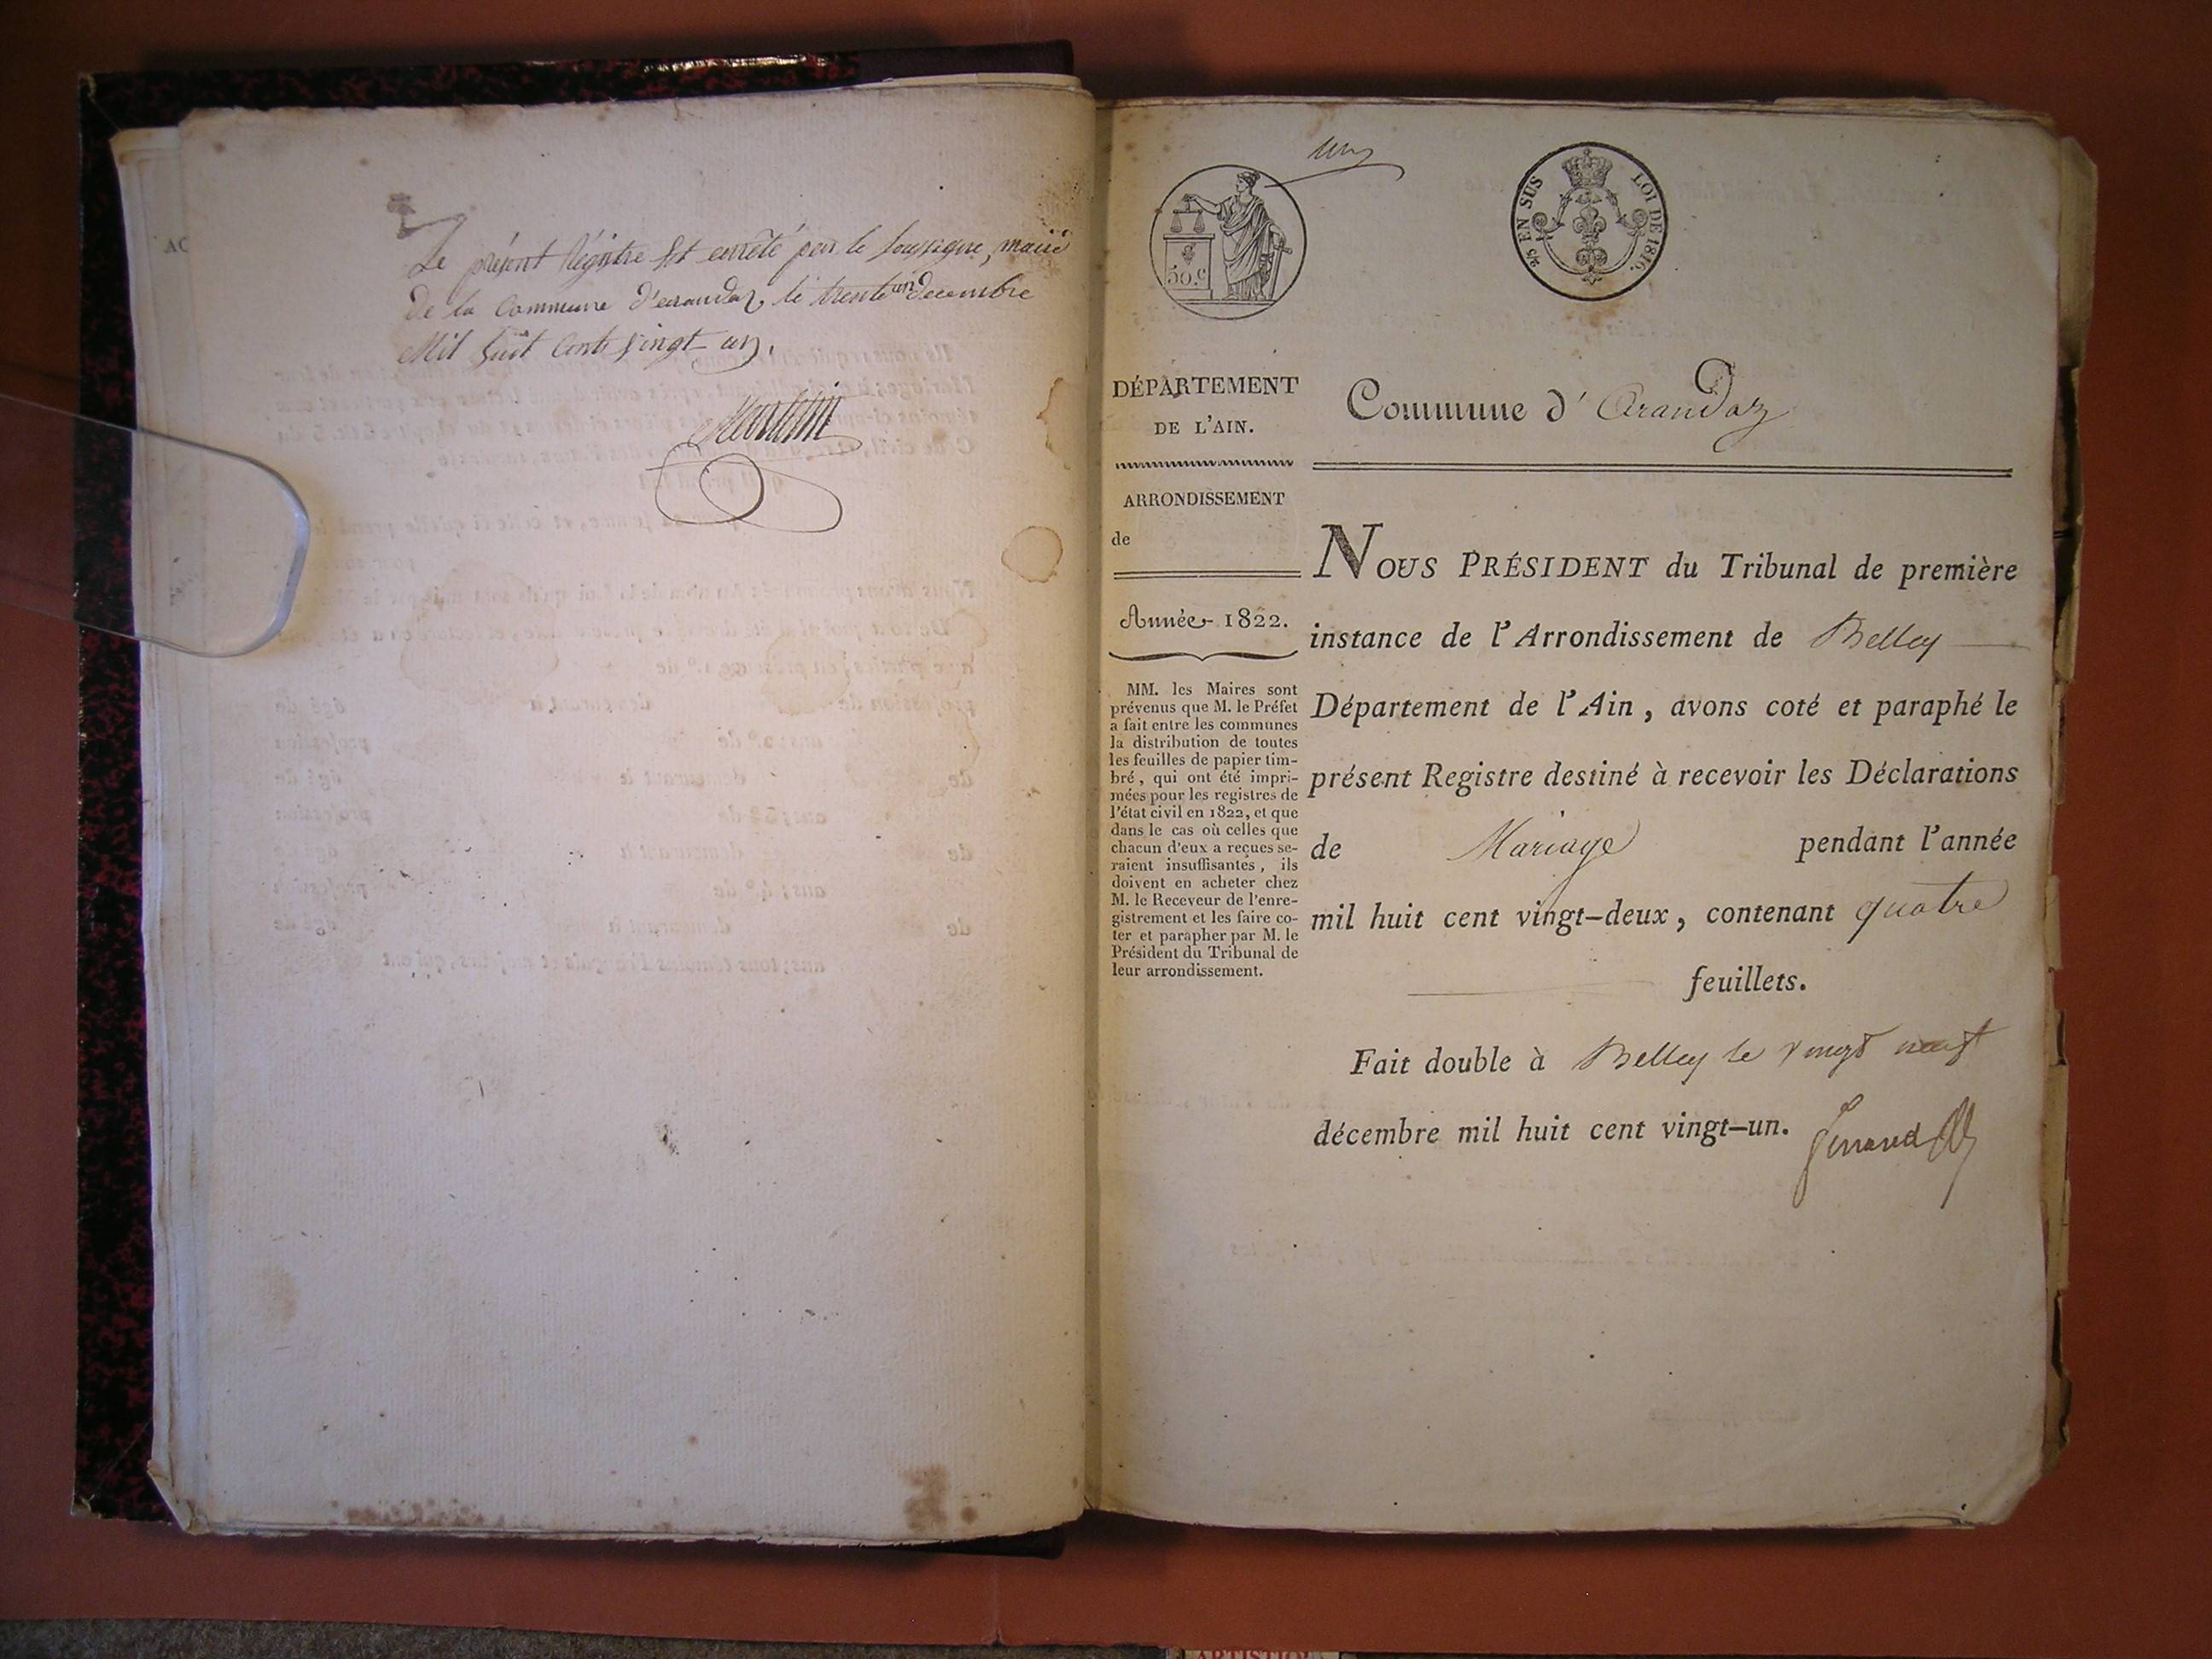 Le présent Régistre Est arrêté par le soussigné, maire
de la Commune d'arandaz, le trente un decembre
Mil huit Cent vingt un.
AC
un
50.c
EN SUS
LOI DE 1816.
DÉPARTEMENT
DE L'AIN.
ARRONDISSEMENT
de
Année 1822.
MM. les Maires sont
prévenus que M. le Préfet
a fait entre les communes
la distribution de toutes
les feuilles de papier tim-
bré, qui ont été impri-
mées pour les registres de
l'état civil en 1822, et que
dans le cas où celles que
chacun d'eux a reçues se-
raient insuffisantes, ils
doivent en acheter chez
M. le Receveur de l'enre-
gistrement et les faire co-
ter et parapher par M. le
Président du Tribunal de
leur arrondissement.
Commune d' Arandaz
NOUS PRÉSIDENT du Tribunal de première
instance de l'Arrondissement de Belley
Département de l'Ain, avons coté et paraphé le
présent Registre destiné à recevoir les Déclarations
de Mariage pendant l'année
mil huit cent vingt-deux, contenant quatre
feuillets.
Fait double à Belley le vingt neuf
décembre mil huit cent vingt-un.